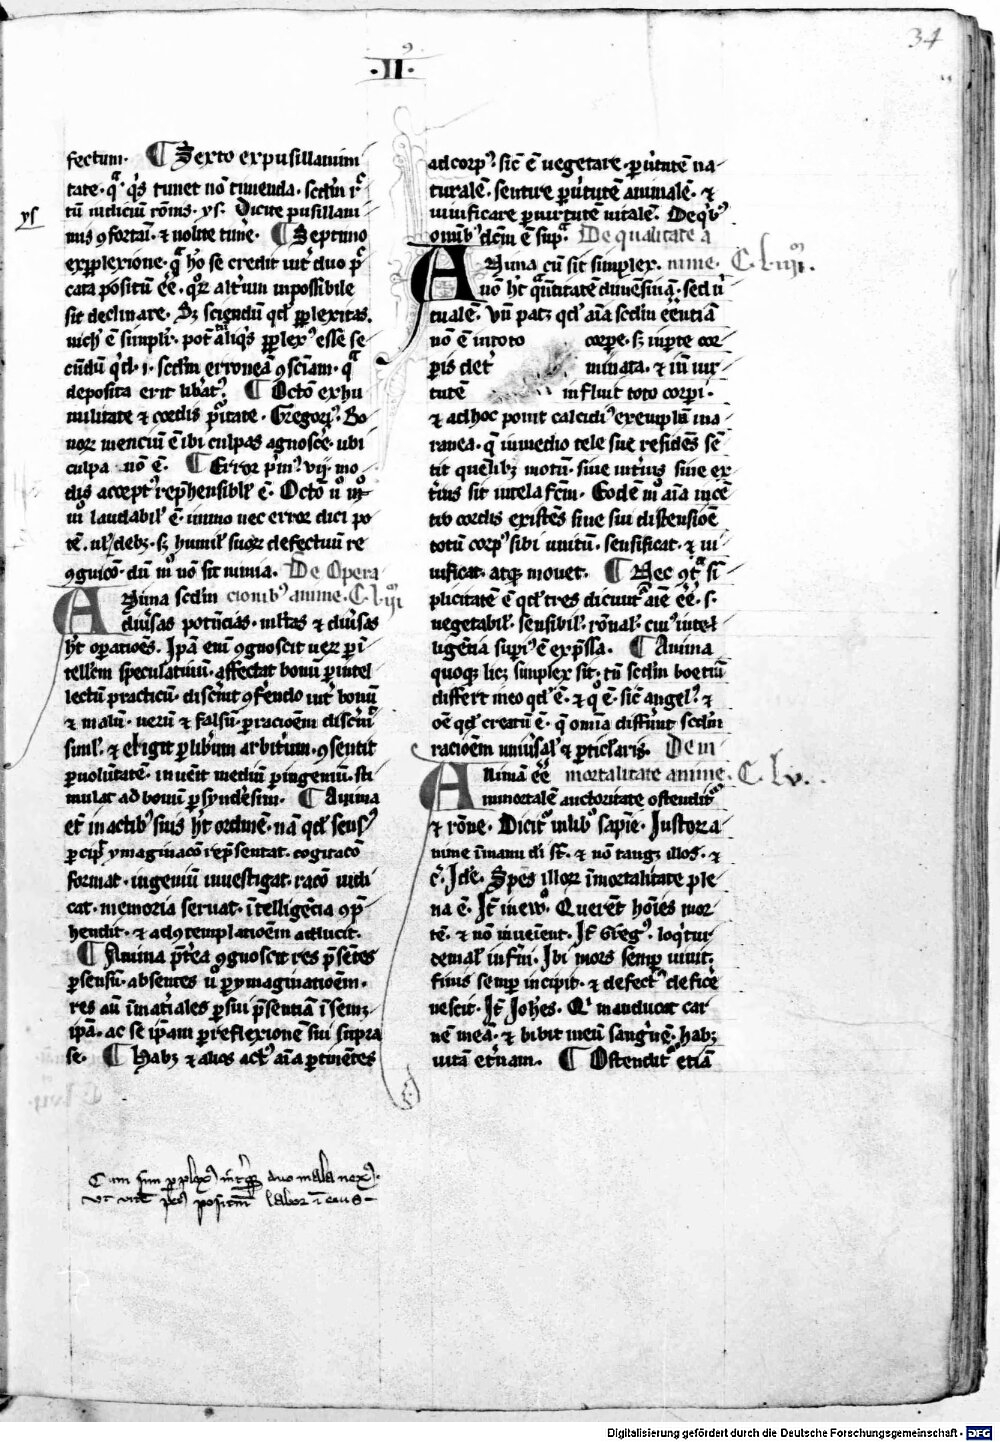 34
·II·
fectum· ¶ Sexto ex pusillanimi
tate· qͣ· qͥs timet nō timenda· scd̄m rͨ
tū iudiciū rōnis· ys· Dicite pusillani
ys
mis ꝯfortaī· ⁊ nolite tīe· ¶ Septimo
ex ꝑplexione· qͣ hō se credit int̄ duo pͨ
cata positū eē· qͦꝝ alt̄um inpossibile
sit declinare· Sꝫ sciendū qđ ꝑplexitas
nich̄ ē simplr̄· pot̄ tn̄ aliqͥs ꝑplexꝰ esse se
cūdū qͥd· i· scd̄m erroneā ꝯsciam· qͣ
deposita erit lib̄atꝰ· ¶ Octō ex hu
militate ⁊ cordis pͥtate· Gregoriꝰ· Bo
noꝝ menciū ē ibi culpas agnosc̄e· ubi
culpa nō ē· ¶ Error pͥmꝰ vij· mo
dis acceptꝰ rep̄hensibil̄ ē· Octō ū mͦ
laudabil̄ ē· immo nec error dici po
tē· ul̄ debꝫ· sꝫ humil̄ suoꝝ defectuū re
ꝯgnicō· dū mͦ nō sit nimia. De Opera
Anima scd̄m cionibꝰ anime· C· liij
diūsas potn̄cias· ml̄tas ⁊ diūsas
ht̄ oꝑatiōes. Ipā eni ꝯgnoscit ueꝝ ꝑ ī
tell̄cm speculatiuū· affectat bonū ꝑ intel
lectū practicū· disc̄nit ꝯf̄endo int̄ bonū
⁊ malū· uerū ⁊ falsū· ꝑ racioēm disc̄nit
siml̄· ⁊ eligit ꝑ lib̄um arbit̄um· ꝯsentit
ꝑ uolūtatē· inuēit mediū ꝑ ingeniū· sti
mulat ad bonū ꝑ synd̄esim· ¶ Anima
et̄ in actibꝰ suis ht̄ ordinē· nā qđ sensꝰ
ꝑcipit ymaginacō rep̄sentat· cogitacō
format· ingeniū inuestigat· racō iudi
cat· memoria seruat· ītelligēcia ꝯp̄
hendit· ⁊ ad ꝯtemplatioēm adducit·
¶ Anima p̄t̄ea ꝯgnoscit res p̄sētes
ꝑ sensū· absentes ū ꝑ ymaginatioēm·
res aū īmat̄iales ꝑ sui p̄sentiā ī semꝫ
ipā· ac se ip̄am ꝑ reflexionē sui supra
se· ¶ Habꝫ ⁊ alios actꝰ aīa ꝑtinētes
ad corpꝰ· sic̄ ē uegetare· ꝑ ūtutē na
turalē· sentire ꝑ ūtutē animalē· ⁊
uiuificare ꝑ uirtutē uitalē· De qͥbꝰ
omībꝰ dcm̄ ē supͣ· De qualitate a
Anima cū sit simplex· nime· C· liiij·
nō ht̄ qͣntitatē dimēsiuā· sed ū
tualē· Vn̄ patꝫ qđ aīa scd̄m eēntiā
nō ē in toto corpe· sꝫ in ꝑte cor
ꝑis det̄ minata· ⁊ ī uir
tutē influit toto corpi·
⁊ ad hoc ponit calcidiꝰ exemplū in a
ranea· q̄ in medio tele sue residēs sē
tit quēlibꝫ motū· siue int̄ius siue ex
t̄ius sit in tela fc̄m· Eodē mͦ aīa in cē
tro cordis existēs sine sui distensiōe
totū corpꝰ sibi unitū· sensificat· ⁊ ui
uificat· atqꝫ mouet· ¶ Nec ꝯtͣ sī
plicitatē ē qđ tres dicunt̄ aīe eē· s·
uegetabil̄· sensibil̄· rōnal̄· cuiꝰ intel
ligēcia supiꝰ ē exp̄ssa. ¶ Anima
quoqꝫ licꝫ simplex sit· tn̄ scd̄m boetiū
differt in eo qđ ē· ⁊ qͦ ē· sic̄ angelꝰ· ⁊
oē qđ creatū ē· q̄ omia diffūnt scd̄m
racioēm uniūsal̄ ⁊ ꝑticl̄aris· De in
Animā eē mortalitate anime· C· lv·
inmortalē auctoritate ostendit̄
⁊ rōne· Dicit̄ in libͦ sapīe· Justoꝝ a
nime ī manu di st̄· ⁊ nō tangꝫ illos· ⁊
c̄· Jdē· Spes illoꝝ īmortalitate ple
na ē· Jt̄ Querēt hoīes mor
tē· ⁊ nō inueīent· Jt̄ Gregꝰ· loqͥtur
de mal̄ infn̄i· Jbi mors semꝑ uiuit·
finis semꝑ incipit· ⁊ defectꝰ defic̄e
nescit· Jt̄ Joh̄es· Qͥ manducat car
nē meā· ⁊ bibit meū sangͥnē· habꝫ
uitā et̄nam· ¶ Ostendit̄ etiā
Digitalisierung gefördert durch die Deutsche Forschungsgemeinschaft · DFG